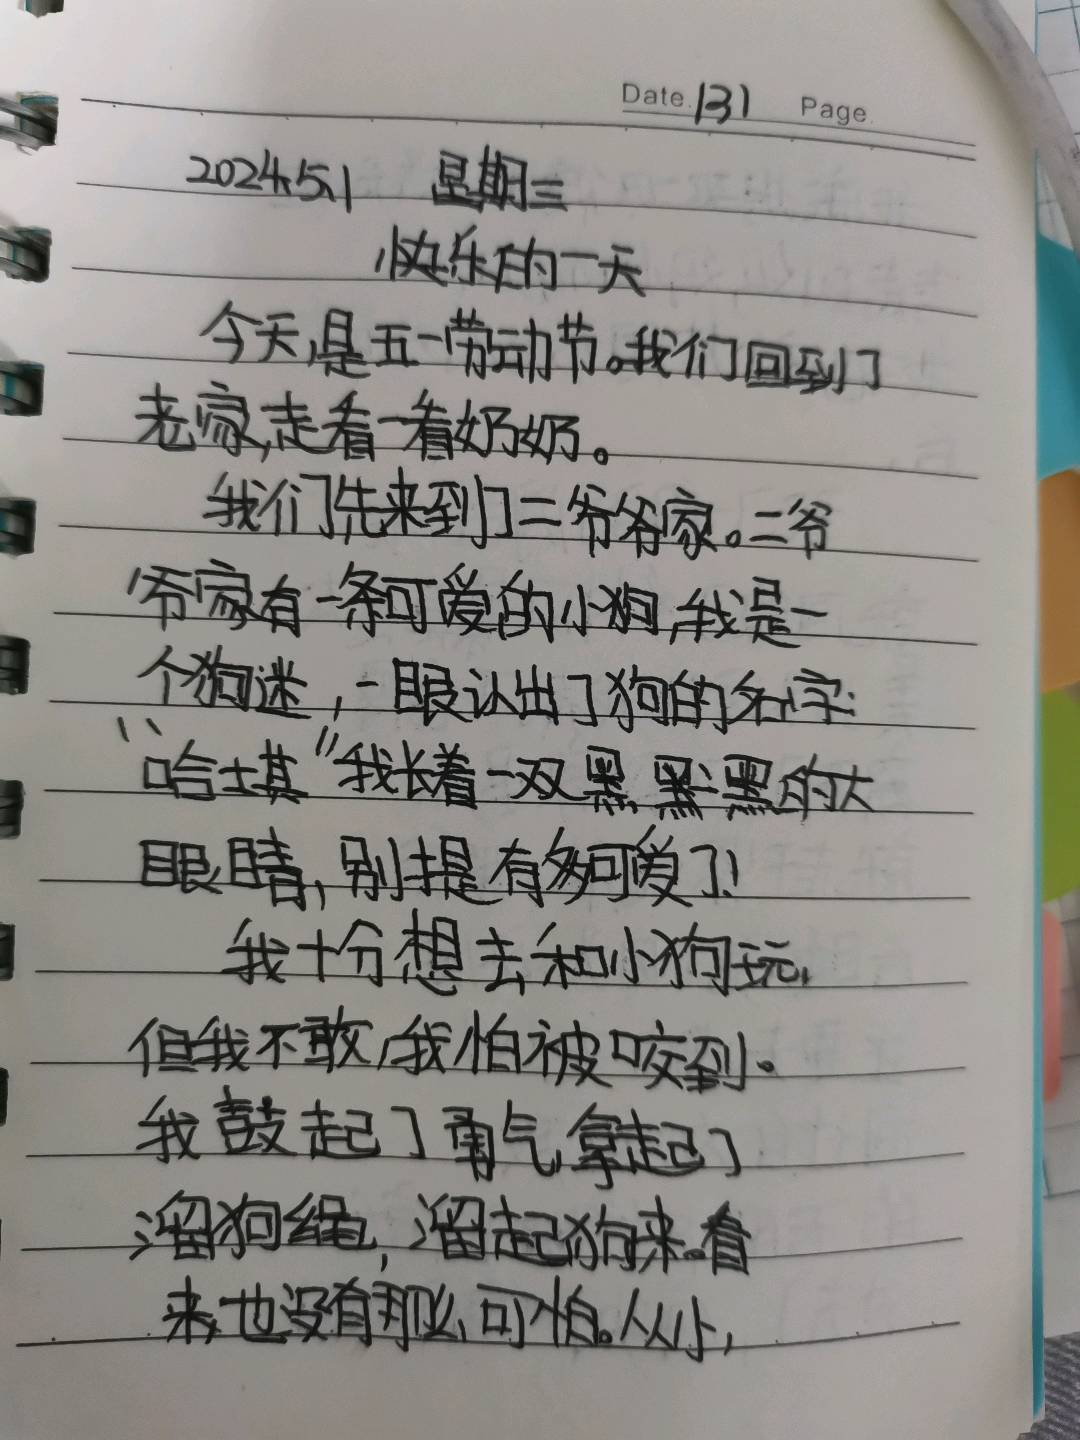 Date. 131 Page.
2024.5.1 星期三
快乐的一天
今天,是五一劳动节。我们回到了
老家,走看一看奶奶。
我们先来到了二爷爷家。二爷
爷家有一条可爱的小狗,我是一
个狗迷,一眼认出了狗的名字:
“哈士其”我长着一双黑黑黑的大
眼睛,别提有多可爱了!
我十分想去和小狗玩,
但我不敢,我怕被咬到。
我鼓起了勇气,拿起了
溜狗绳,溜起狗来。看
来,也没有那么可怕。从小,